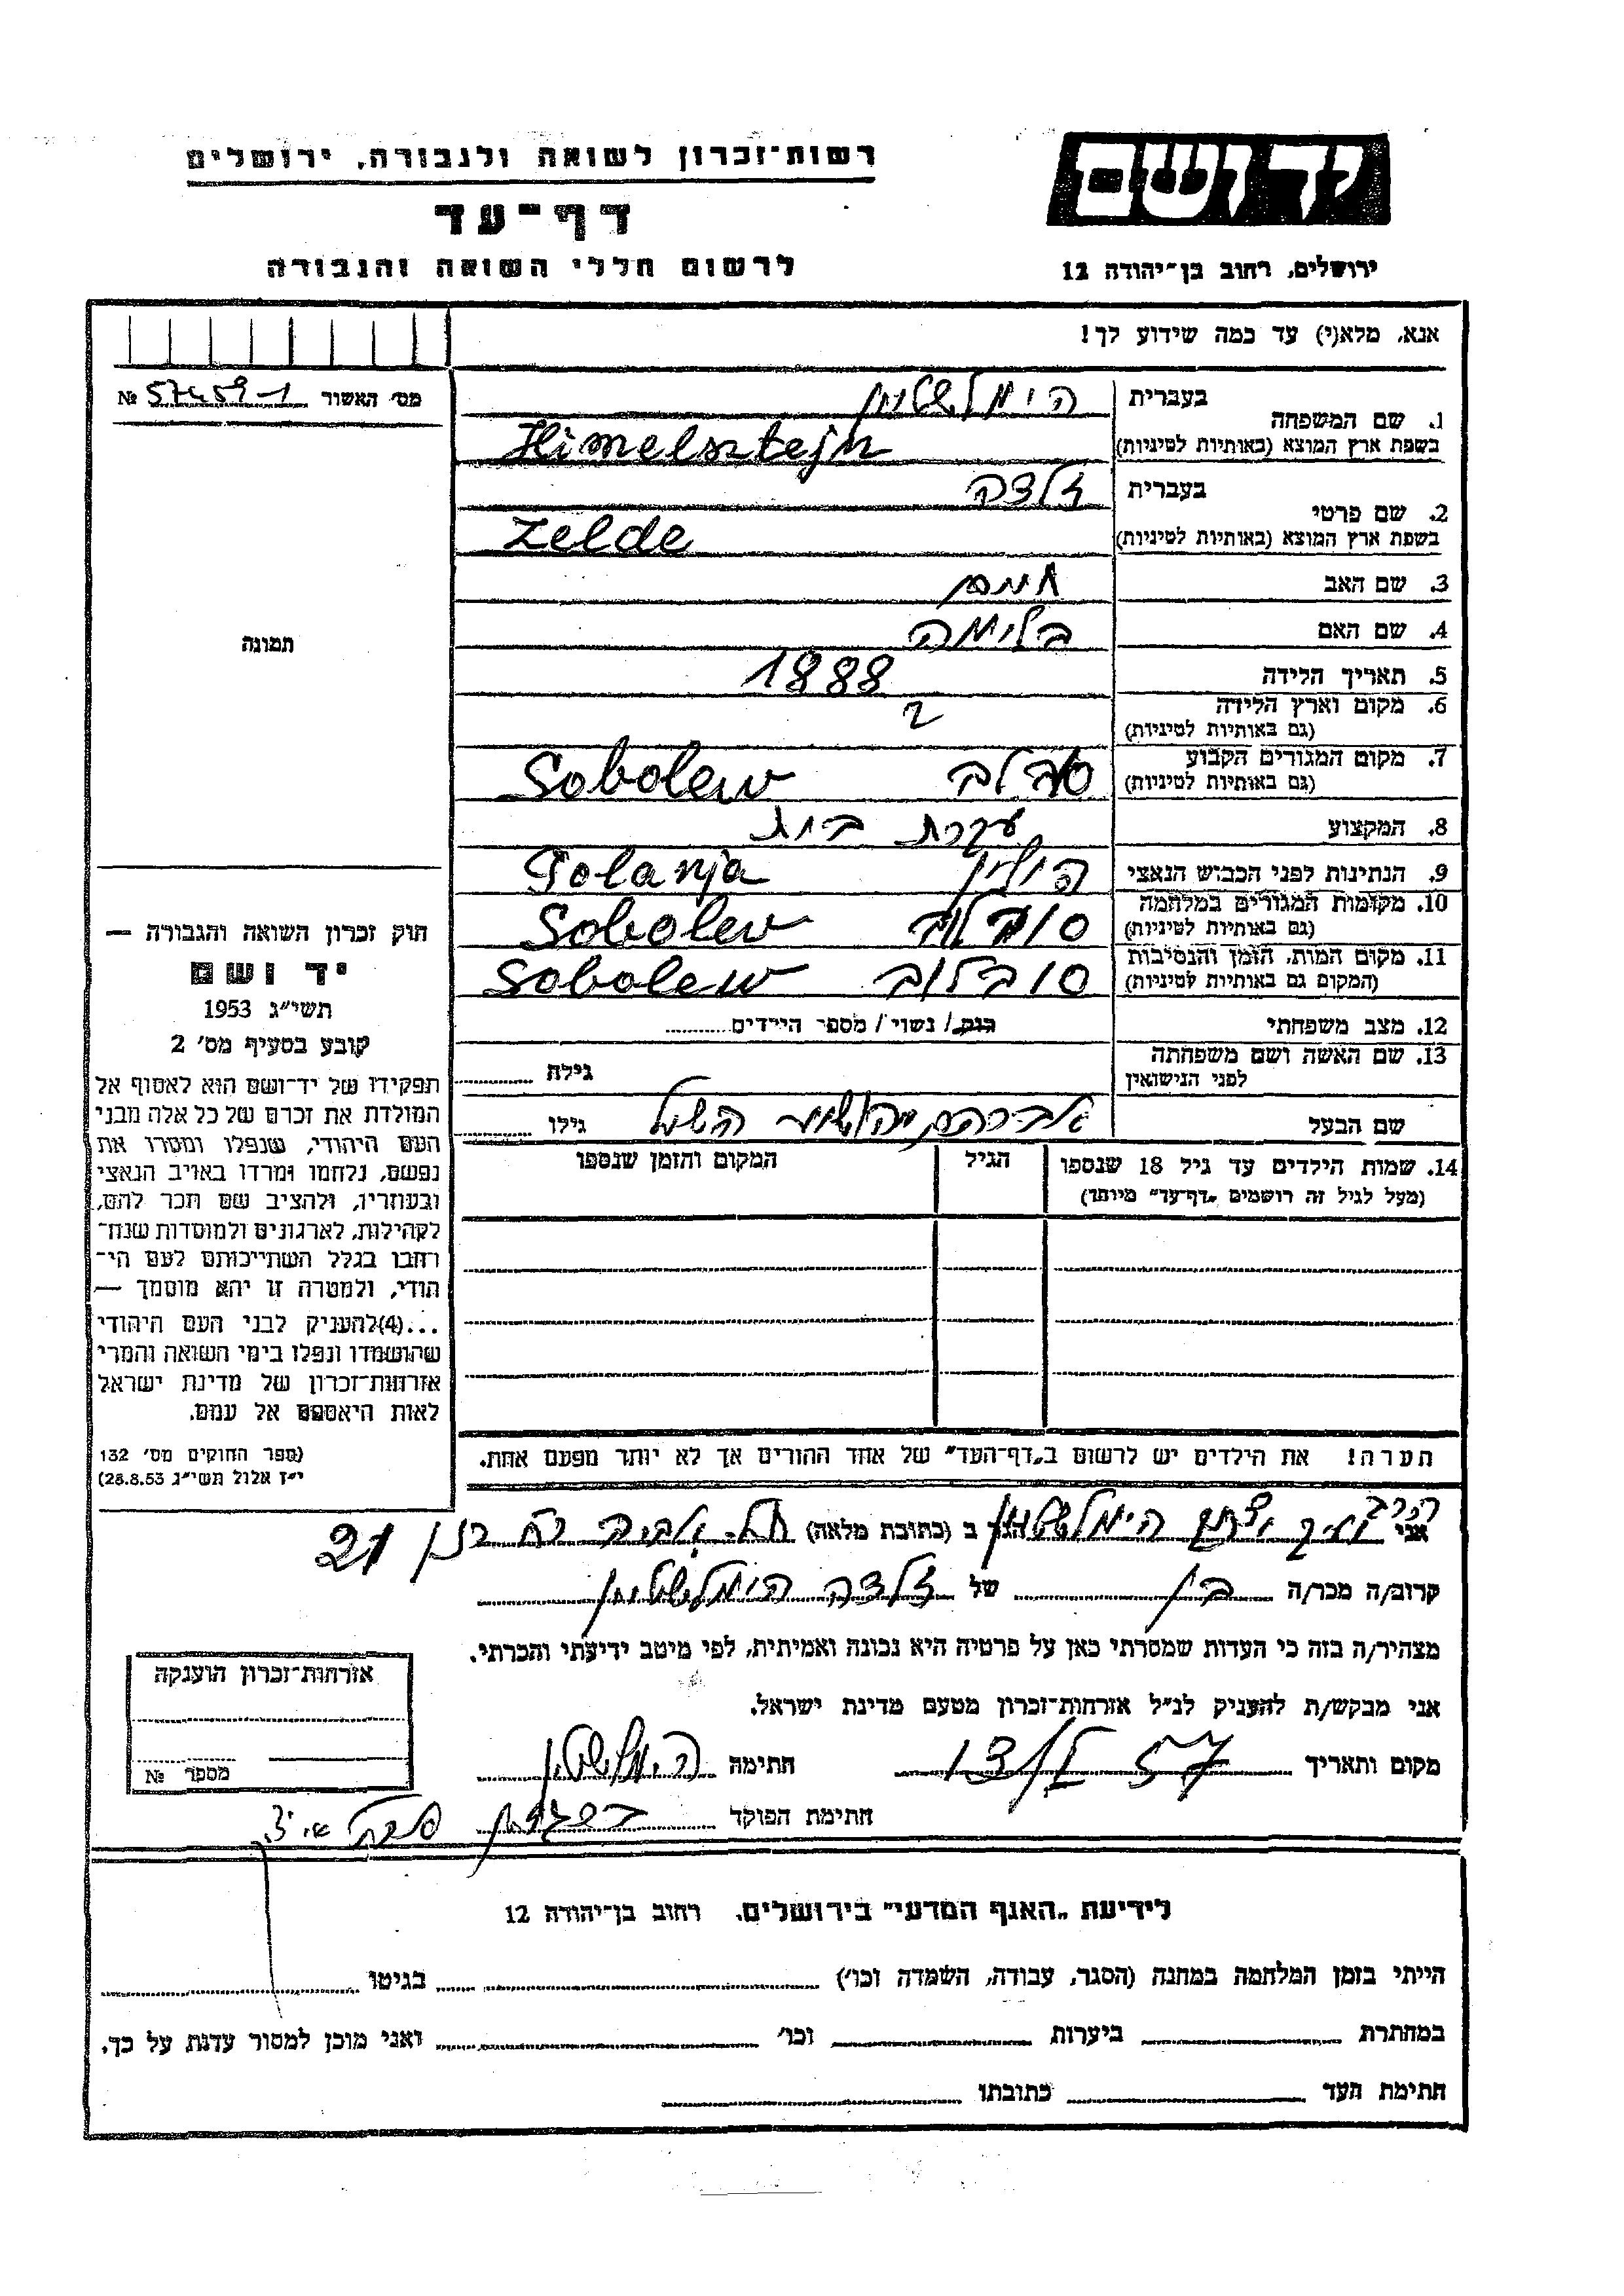 רשות־זכרון לשואה ולגבורה, ירושלים
דף־עד
לרשום חללי השואה והגבורה
יד ושם
ירושלים, רחוב בן־יהודה 12
אנא, מלא(י) עד כמה שידוע לך!
מס׳ האשור 57459-1 №
תמונה
חוק זכרון השואה והגבורה —
יד ושם
תשי״ג 1953
קובע בסעיף מס׳ 2
תפקידו של יד־ושם הוא לאסוף אל
המולדת את זכרם של כל אלה מבני
העם היהודי, שנפלו ומסרו את
נפשם, נלחמו ומרדו באויב הנאצי
ובעוזריו, ולהציב שם וזכר להם,
לקהילות, לארגונים ולמוסדות שנח־
רבו בגלל השתייכותם לעם הי־
הודי, ולמטרה זו יהא מוסמך —
...(4)להעניק לבני העם היהודי
שהושמדו ונפלו בימי השואה והמרי
אזרחות־זכרון של מדינת ישראל
לאות היאספם אל עמם.
(ספר החוקים מס׳ 132
י״ז אלול תשי״ג 28.8.53)
1. שם המשפחה בעברית הימלשטיין
בשפת ארץ המוצא (באותיות לטיניות) Himelsztejn
2. שם פרטי בעברית זלדה
בשפת ארץ המוצא (באותיות לטיניות) Zelde
3. שם האב
4. שם האם בלימה
5. תאריך הלידה 1888
6. מקום וארץ הלידה
(גם באותיות לטיניות)
7. מקום המגורים הקבוע סבלב Sobolew
(גם באותיות לטיניות)
8. המקצוע עקרת בית
9. הנתינות לפני הכבוש הנאצי פולין Polanja
10. מקומות המגורים במלחמה סובלוב Sobolew
(גם באותיות לטיניות)
11. מקום המות, הזמן והנסיבות סובלוב Sobolew
(המקום גם באותיות לטיניות)
12. מצב משפחתי רווק / נשוי / מספר הילדים
13. שם האשה ושם משפחתה
לפני הנישואין גילה
שם הבעל אברהם יהושע השל גילו
14. שמות הילדים עד גיל 18 שנספו הגיל המקום והזמן שנספו
(מעל לגיל זה רושמים „דף־עד״ מיוחד)
הערה! את הילדים יש לרשום ב„דף־העד״ של אחד ההורים אך לא יותר מפעם אחת.
הרב
אני יצחק הימלשטיין הגר ב (כתובת מלאה) תל אביב 21
קרוב/ה מכר/ה בן של זלדה הימלשטיין
מצהיר/ה בזה כי העדות שמסרתי כאן על פרטיה היא נכונה ואמיתית, לפי מיטב ידיעתי והכרתי.
אני מבקש/ת להעניק לנ״ל אזרחות־זכרון מטעם מדינת ישראל.
מקום ותאריך חתימה הימלשטיין
חתימת הפוקד
אזרחות־זכרון הוענקה
מספר №
לידיעת „האגף המדעי״ בירושלים, רחוב בן־יהודה 12
הייתי בזמן המלחמה במחנה (הסגר, עבודה, השמדה וכו׳) בגיטו
במחתרת ביערות וכו׳ ואני מוכן למסור עדות על כך.
חתימת העד כתובתו